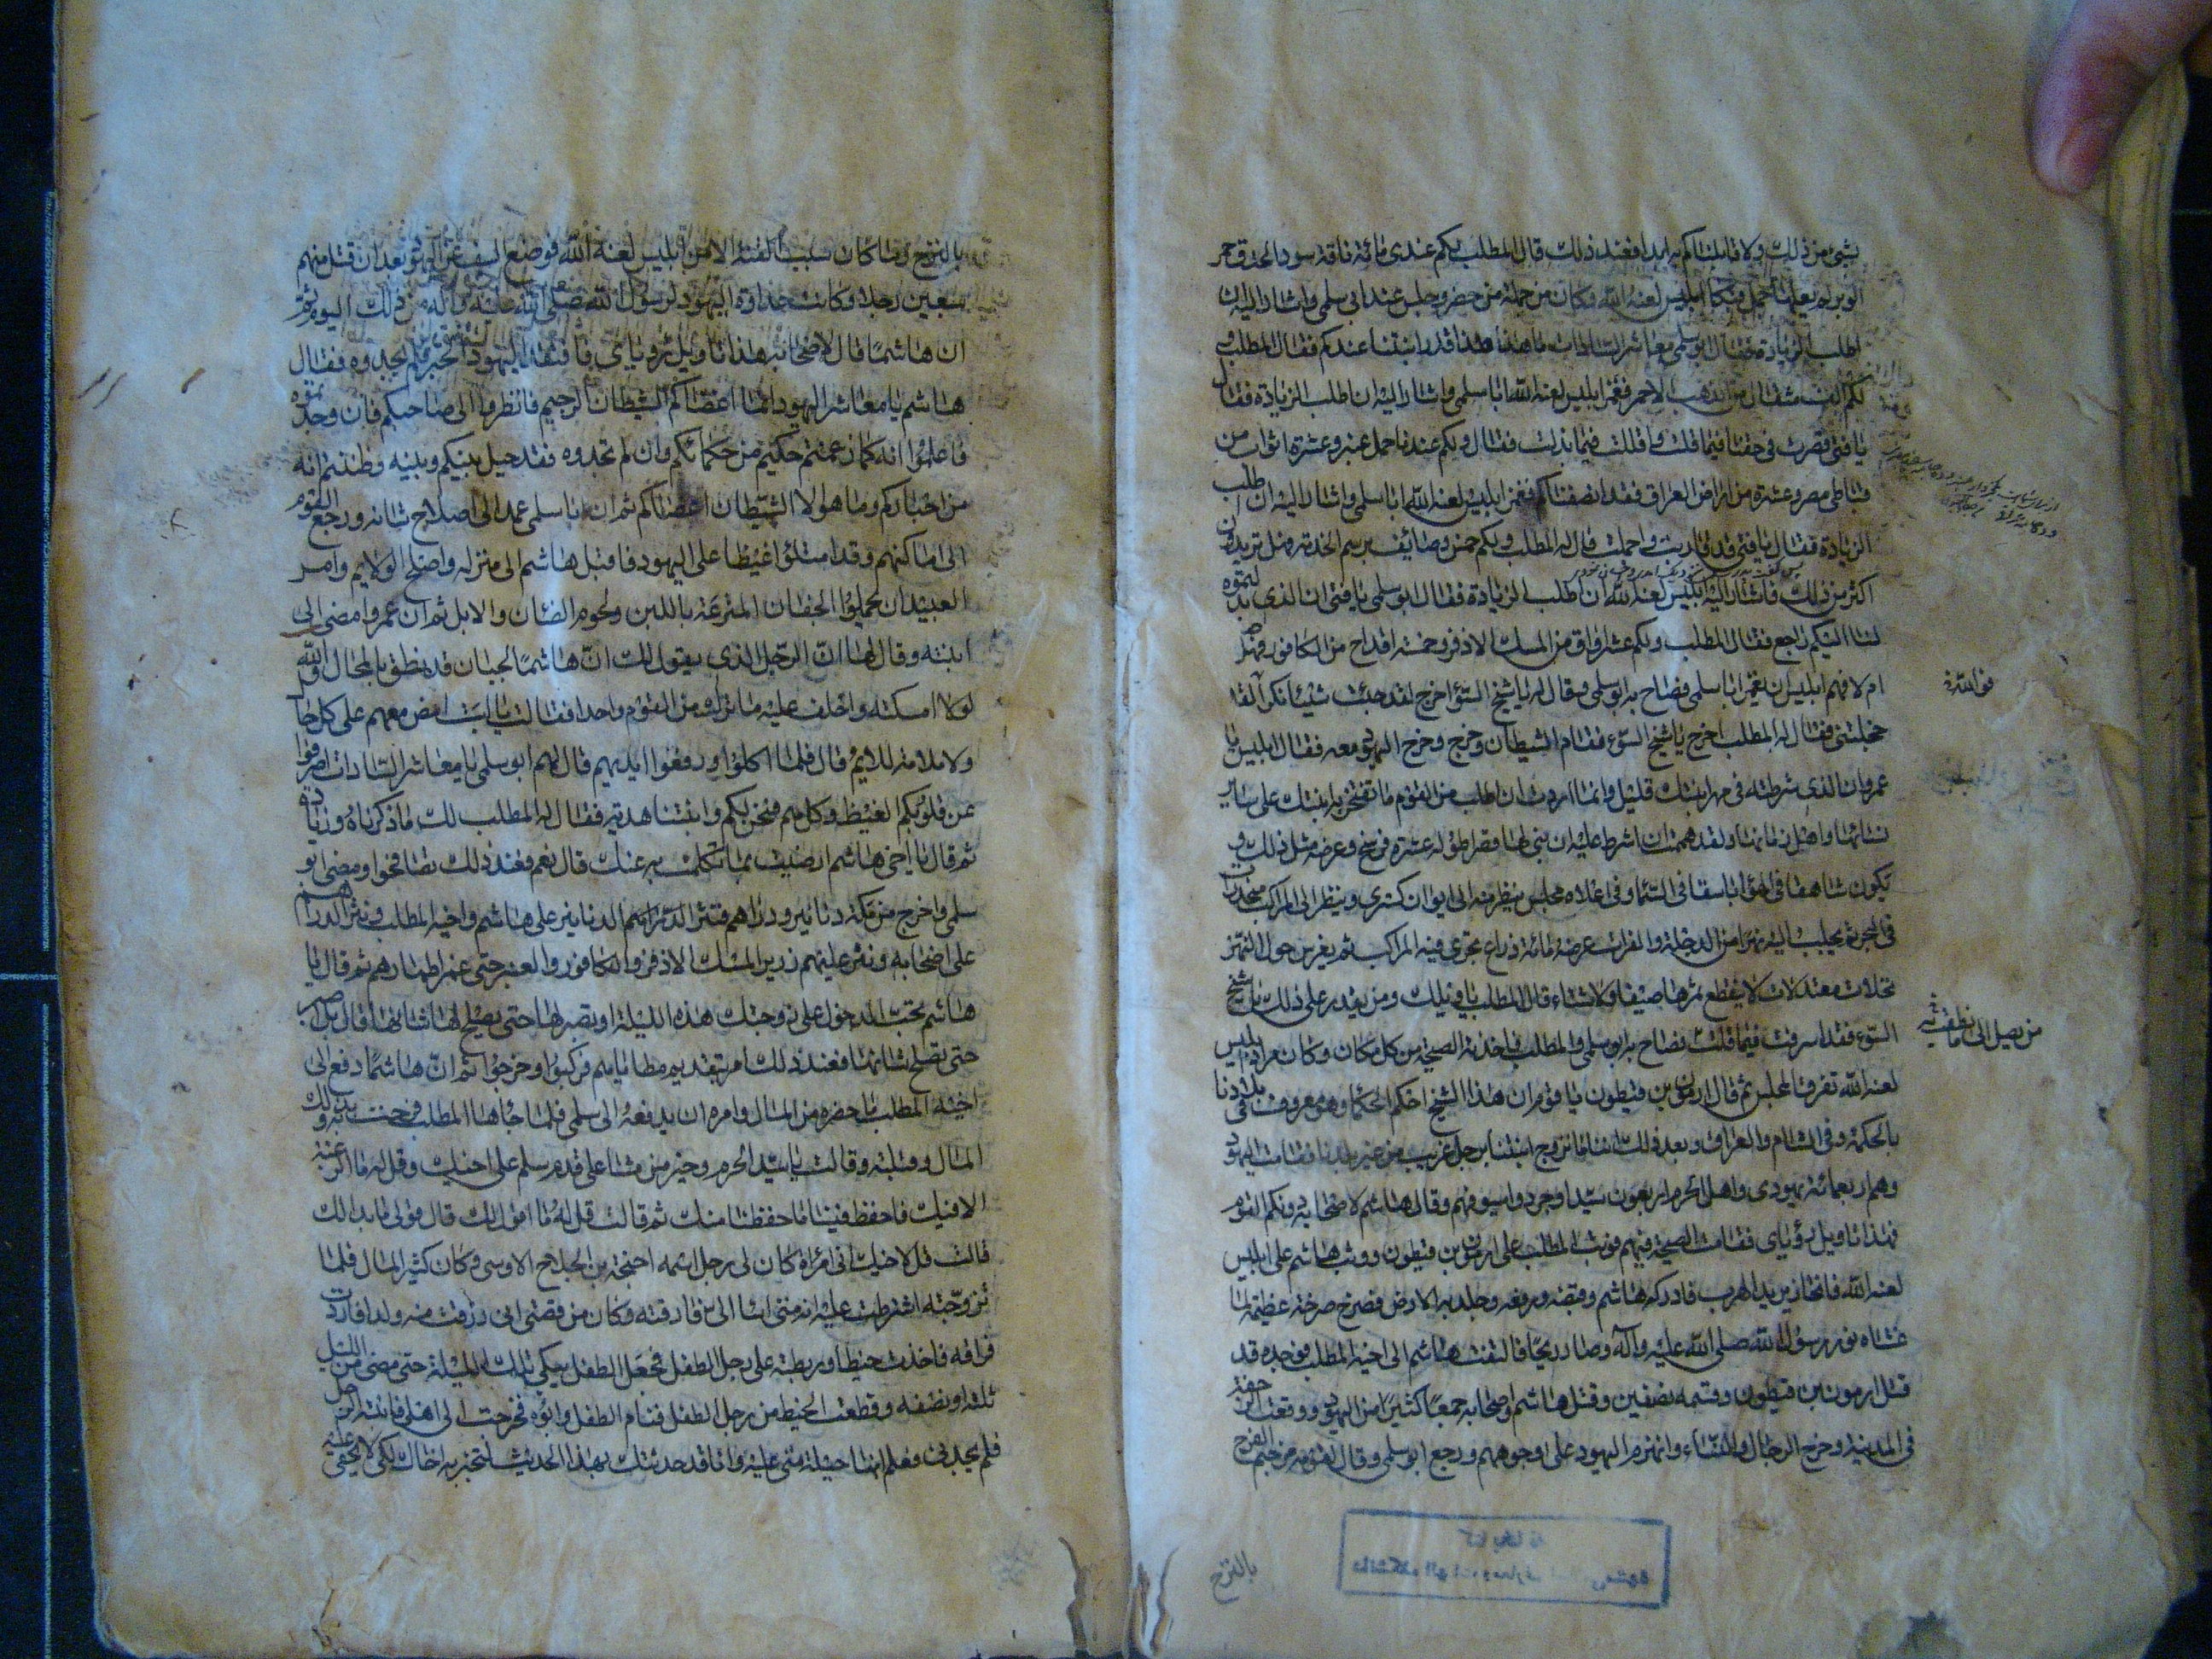 بشئ من ذلك ولا قابلناكم به ابدا فعند ذلك قال المطلب لكم عندى مائة ناقة سود الحدق حمر
الوبر لم يعلها فحل فبكا ابليس لعنه الله وكان من جملة من حضر وجلس عند ابى سلمى واشار اليه ان
اطلب الزيادة فقال ابو سلمى معاشر السادات ما هذا قدر ابنتنا عندكم فقال المطلب و
لكم الف مثقال من الذهب الاحمر فغمز ابليس لعنه الله ابا سلمى واشار اليه ان اطلب الزيادة فقال
يا فتى قصرت فى حقنا فيما قلت واقللت فيما بذلت فقال ولكم عندنا حمل عنبر وعشرة اثواب من
قباطى مصر وعشرة من اراض العراق فقد انصفناكم فغمز ابليس لعنه الله ابا سلمى واشار اليه ان اطلب
الزيادة فقال يا فتى قد قاربت واجملت قال له المطلب ولكم خمس وصائف برسم الخدمة فهل تريدون
اكثر من ذلك فاشار اليه ابليس لعنه الله ان اطلب الزيادة فقال ابو سلمى يا فتى ان الذى بذلتموه
لنا اليكم راجع فقال المطلب ولكم عشر اواق من المسك الاذفر وخمسة اقداح من الكافور فهل رضيتم
ام لا فهم ابليس ان يغمز ابا سلمى فصاح به ابو سلمى وقال له يا شيخ السوء اخرج لقد جئت شيئا نكرا لقد
خجلتنى فقال له المطلب اخرج يا شيخ السوء فقام الشيطان وخرج وخرج اليهود معه فقال ابليس يا
عمرو ان الذى شرطته فى مهر ابنتك قليل وانما اردت ان اطلب من القوم ما تفتخر به ابنتك على سائر
نسائها واهل زمانها ولقد هممت ان اشرط عليه ان يبنى لها قصرا طوله عشرة فرسخ وعرضه مثل ذلك و
يكون شاهقا فى الهوا باسقا فى السما وفى اعلاه مجلس ينظر منه الى ايوان كسرى وينظر الى المراكب منحدرات
فى البحر ثم يجلب اليه نهرا من الدجلة والفرات عرضه مائة ذراع تجرى فيه المراكب ثم يغرس حول النهر
نخلات معتدلات لا ينقطع ثمرها صيفا ولا شتاء قال المطلب يا ويلك ومن يقدر على ذلك يا شيخ
السوء فقد اسرفت فيما قلت فصاح به ابو سلمى والمطلب فاخذته الصيحة من كل مكان وكان مراد ابليس
لعنه الله تفرقا المجلس ثم قال ارمون بن قيطون يا قوم ان هذا الشيخ احكم الحكما وهو معروف فى بلادنا
بالحكمة وفى الشام والعراق وبعد ذلك اننا ما نزوج ابنتنا برجل غريب من غير بلدنا فقامت اليهود
وهم اربعمائة يهودى واهل الحرم اربعون سيدا وجردوا سيوفهم وقال هاشم لاصحابه دونكم القوم
فهذا تاويل رؤياى فقامت الصيحة فيهم فوثب المطلب على ارمون بن قيطون ووثب هاشم على ابليس
لعنه الله فانحاز يريد الهرب فادركه هاشم وقبضه ورفعه وجلد به الارض فصرخ صرخة عظيمة لما
غشاه نور رسول الله صلى الله عليه وآله وصار ريحا فالتفت هاشم الى اخيه المطلب فوجده قد
قتل ارمون بن قيطون وقسمه نصفين وقتل هاشم واصحابه جمعا كثيرا من اليهود ووقعت الرجفة
فى المدينة وخرج الرجال والنساء وانهزم اليهود على وجوههم ورجع ابو سلمى وقال لقومه مزجتم الفرح
بالترح
فوالله
من يصل الى ما نطقت به
بالترح وما كان سبب الفتنة الا من ابليس لعنه الله فوضع السيف عن اليهود بعد ان قتل منهم
سبعين رجلا وكانت عداوة اليهود لرسول الله صلى الله عليه وآله من ذلك اليوم ثم
ان هاشما قال لاصحابه هذا تاويل رؤياى فافتقد اليهود الحبر فلم يجدوه فقال
هاشم يا معاشر اليهود انما اغصاكم الشيطان الرجيم فانظروا الى صاحبكم فان وجدتموه
فاعلموا انه كما زعمتم حكيم من حكمائكم وان لم تجدوه فقد حيل بينكم وبينه وظننتم انه
من احباركم وما هو الا الشيطان اغضاكم ثم ان ابا سلمى عمد الى اصلاح شانه ورجع القوم
الى اماكنهم وقد امتلؤا غيظا على اليهود فاقبل هاشم الى منزله واصلح الولايم وامر
العبيد ان يحملوا الجفان المترعة باللبن ولحوم الضان والابل ثم ان عمروا مضى الى
ابنته وقال لها ان الرجل الذى يقول لك ان هاشما لجبان قد نطق بالمحال والله
لولا امسكته واحلف عليه ما ترك من القوم واحدا فقالت يا ابت امض معهم على كل حال
ولا ملامة للايم قال فلما اكلوا ورفعوا ايديهم قال لهم ابو سلمى يا معاشر السادات اصرفوا
عن قلوبكم الغيظ وكل هم فنحن لكم وابنتنا هدية فقال له المطلب لك ما ذكرناه وزيادة
ثم قال يا اخى هاشم ارضيت بما تكلمت به عنك قال نعم فعند ذلك تصافحوا ومضى ابو
سلمى واخرج من كمه دنانير ودراهم فنثر الدنانير على هاشم واخيه المطلب ونثر الدراهم
على اصحابه ونثر عليهم زرير المسك الاذفر والكافور والعنبر حتى غمر اطمارهم ثم قال يا
هاشم تحب الدخول على زوجتك هذه الليلة او تصبر لها حتى يصلح لها شانها قال بل اصبر
حتى تصلح شانها فعند ذلك امر بتقديم مطاياهم فركبوا وخرجوا ثم ان هاشما دفع الى
اخيه المطلب ما حضره من المال وامره ان يدفعه الى سلمى فلما جاءها المطلب فرحت به وبذلك
المال وقبلته وقالت يا سيد الحرم وخير من مشا على قدم سلم على اخيك وقل له ما الرغبة
الا فيك فاحفظ فينا ما حفظنا منك ثم قالت قل له ما اقول لك قال قولى ما بدا لك
قالت قل لاخيك انى امرأة كان لى رجل اسمه احيحة بن الجلاح الاوسى وكان كثير المال فلما
تزوجته اشترطت عليه انه متى اسا الى فارقته وكان من قصتى انى رزقت منه ولدا فاردت
فراقه فاخذت خيطا وربطته على رجل الطفل فجعل الطفل يبكى تلك الليلة حتى مضى من الليل
ثلثه او نصفه وقطعت الخيط من رجل الطفل فنام الطفل وابوه فخرجت الى اهلى فانتبه الرجل
فلم يجدنى فعلم انها حيلة منى عليه وانا قد حدثتك بهذا الحديث لتخبر به اخاك لكى لا يخفى عليه